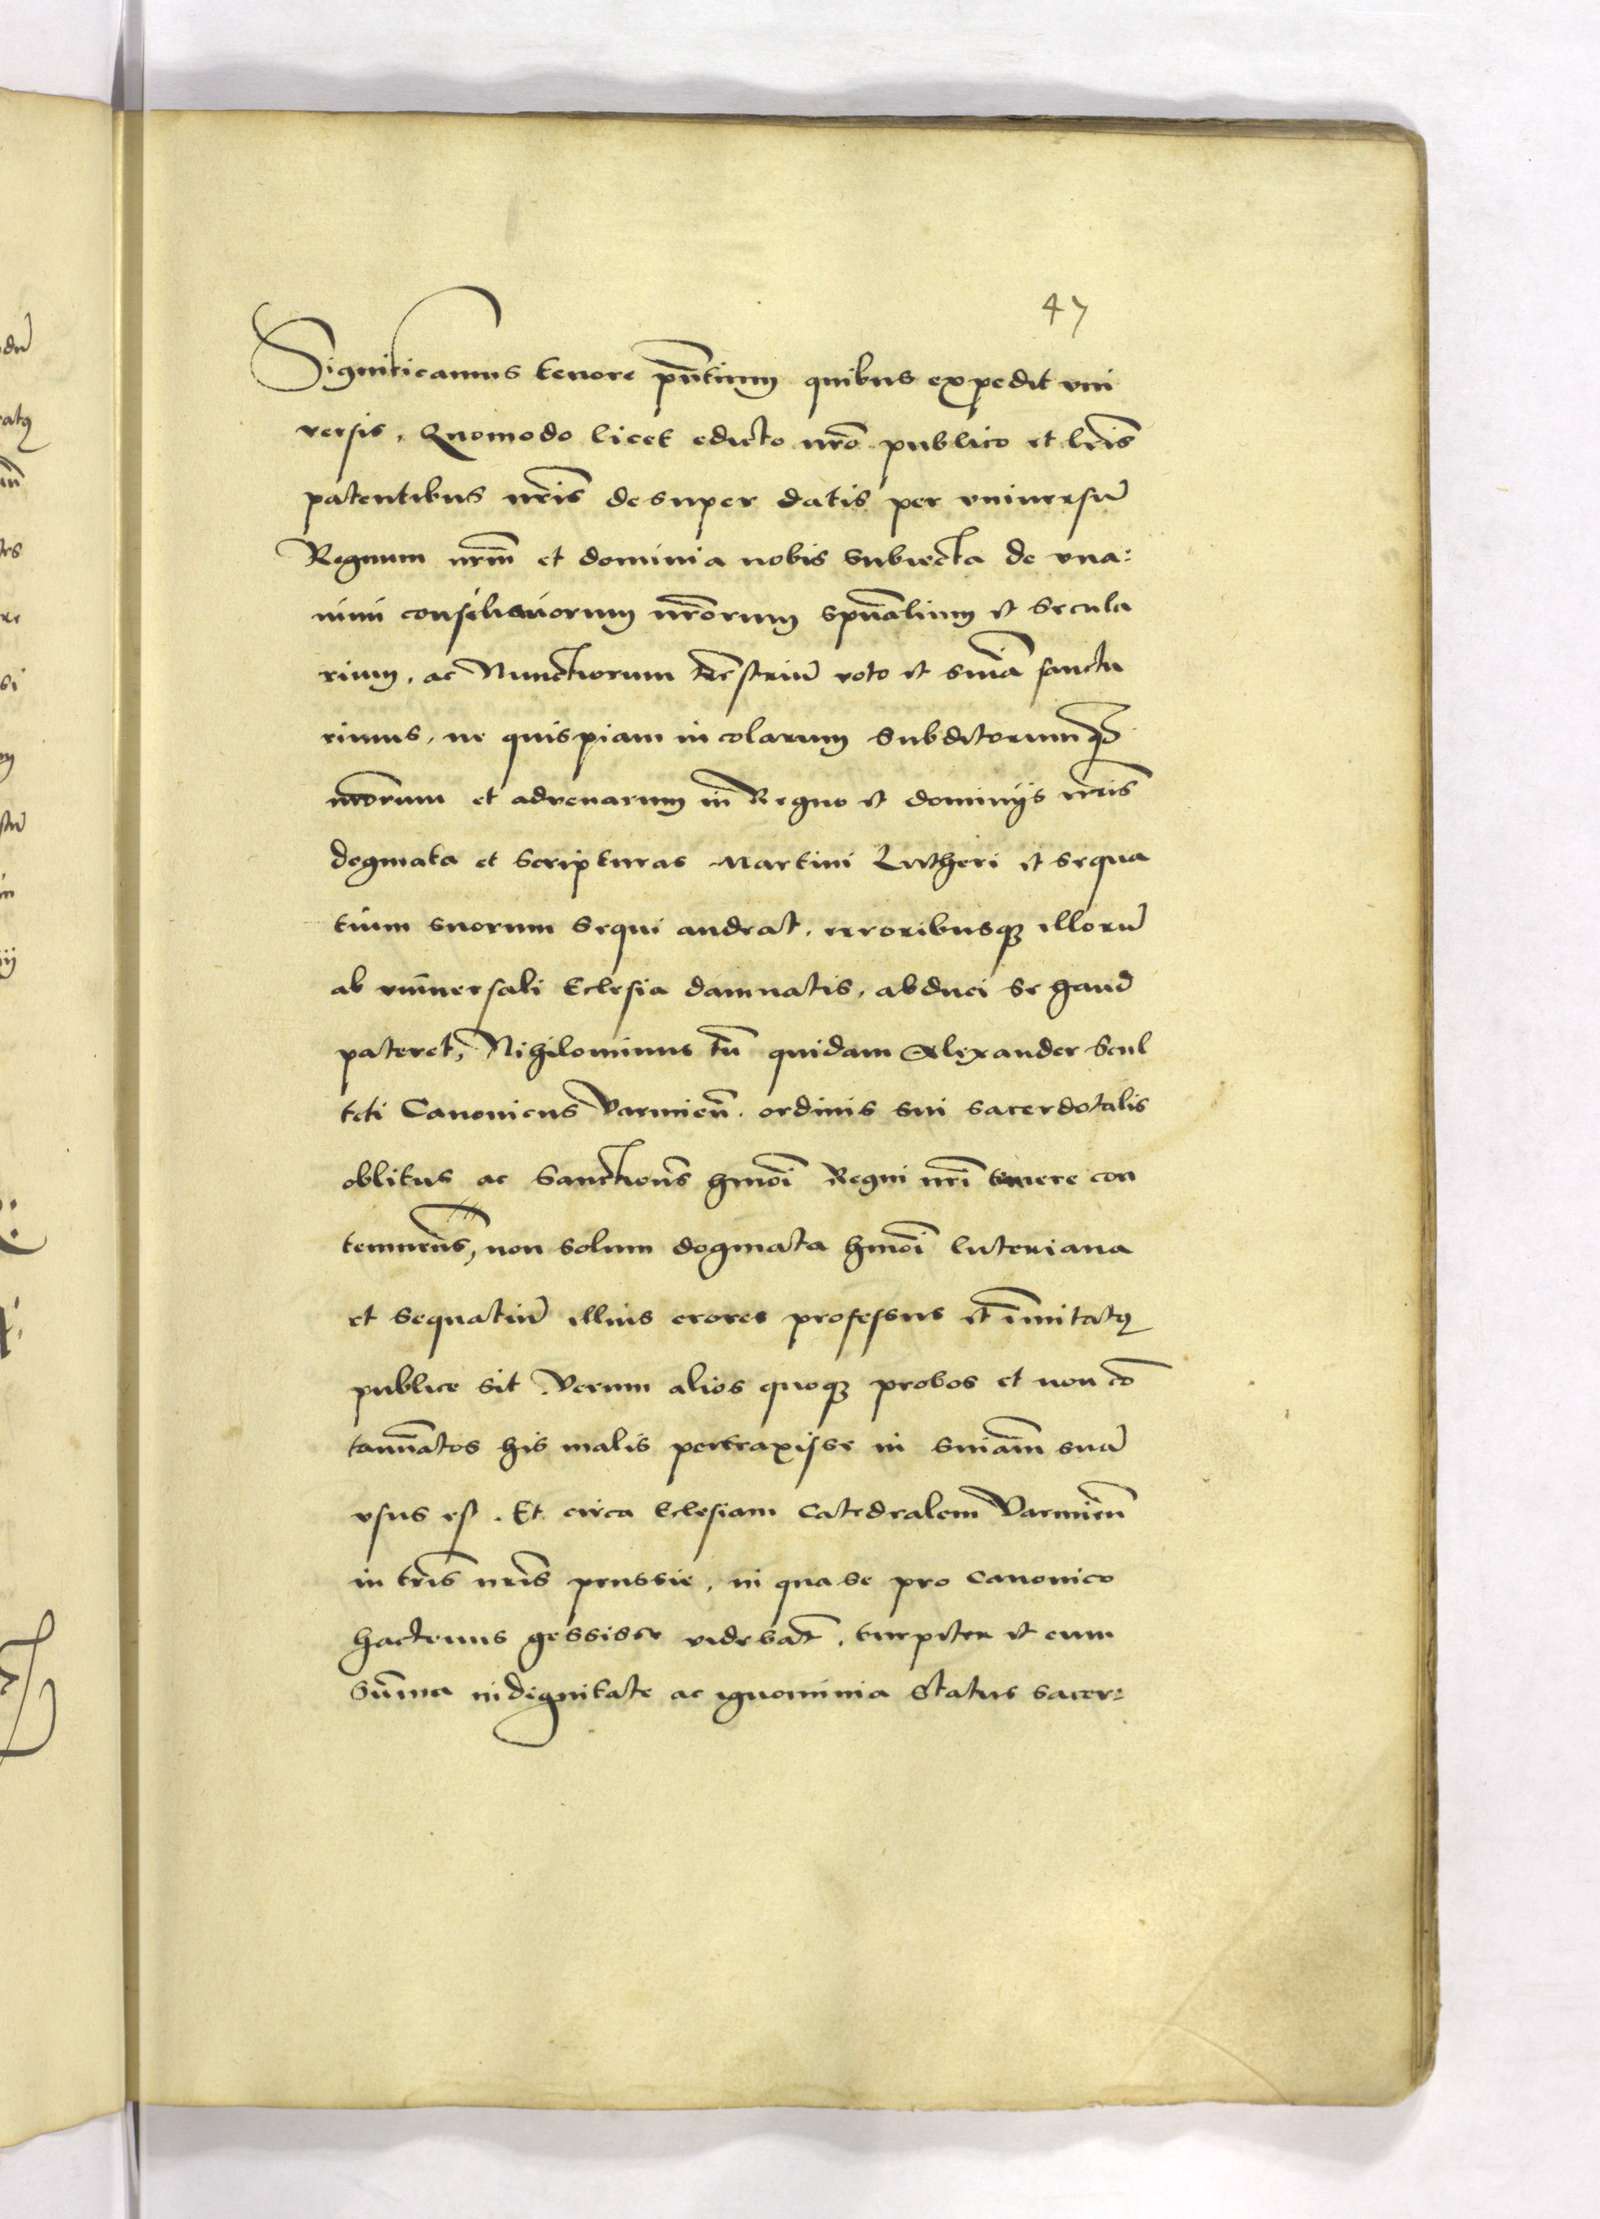 47
Significamus tenore pñtium quibus expedit vni
versis, Quomodo licet edicto nrõ publico et lris̃
patentibus nris̃ desuper datis per vniuersũ
Regnum nrm̃ et dominia nobis subiecta de vna:
nimi consiliariorum nrõrum spũalium et secula
rium, ac Nunctiorum trẽstrium voto et sniã sanctu
rimus, ne quispiam incolarum subditorum
nrõrum et advenarum in Regno et dominijs nris̃
dogmata et scripturas Martini Lutheri et sequa
tium suorum sequi audeat, erroribusq; illorũ
ab vniuersali Eclesia damnatis, abduci se haud
pateret, Nihilominus tñ quidam Alexander Scul
teti Canonicus Varmieñ. ordinis sui sacerdotalis
oblitus ac Sanctionẽs hmõi Regni nri̇̃ temere con
temnens̃, non solum dogmata hmõi luteriana
et sequatiũ illius erores professus et imitatq
publice sit. Verum alios quoq; probos et non cõ
tamĩatos his malis pertraxisse in sniãm suã
vsus est. Et circa Eclesiam Catedralem Varmieñ
in tris̃ nris̃ prussie, in qua se pro Canonico
hactenus gessisse videbat̃, turpiter et cum
sũma indignitate ac ignominia status sacer: